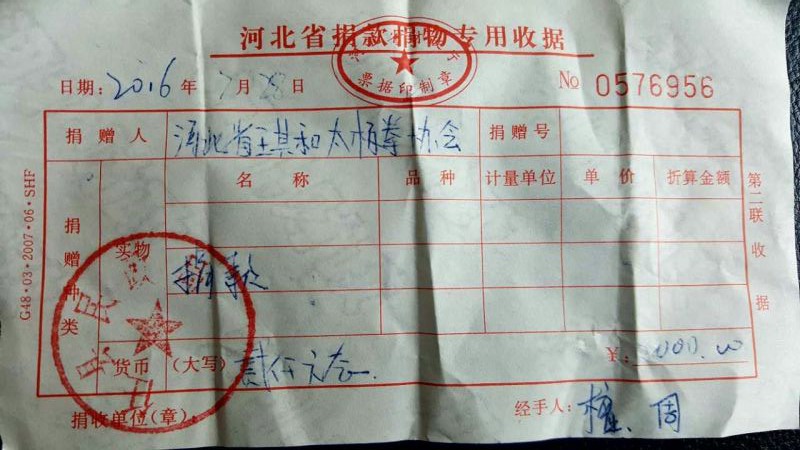 河北省捐款捐物专用收据
票据印制章
日期: 2016 年 7 月 28 日 No 0576956
捐赠人 河北省王其和太极拳协会 捐赠号
捐赠种类 名称 品种 计量单位 单价 折算金额
实物 捐款
货币 (大写) 贰仟元态. ¥: 2000.00
捐收单位(章) 经手人:
G48·03·2007·06·SHF
第二联收据